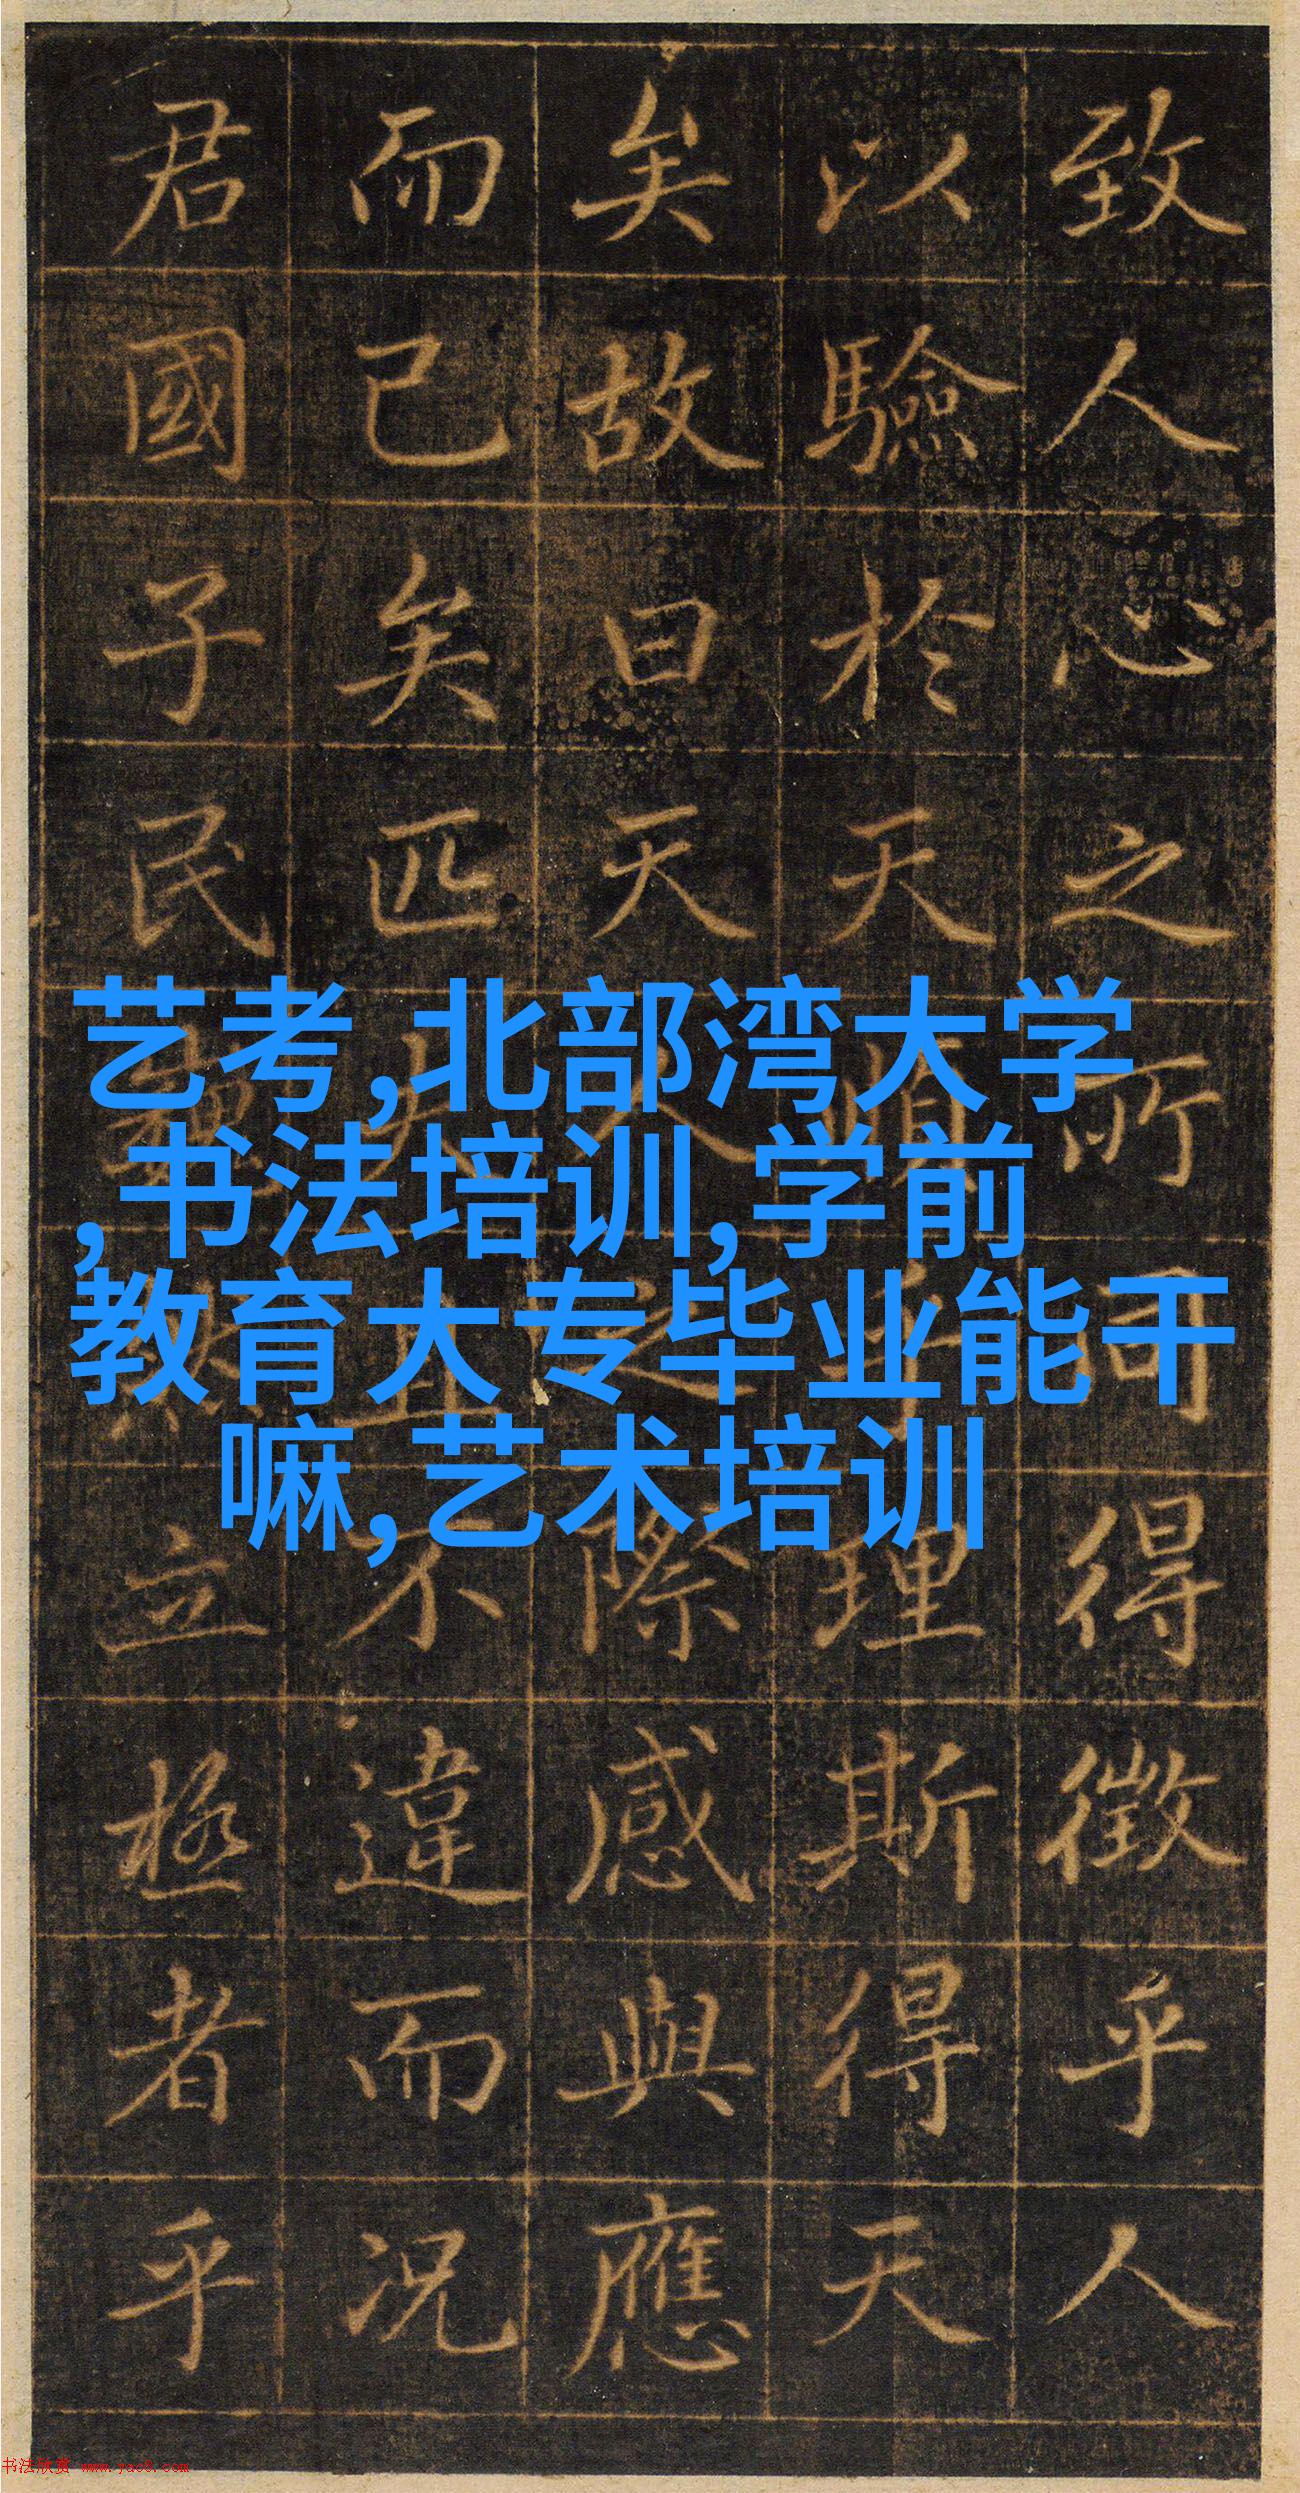 致人心之所同得徵乎人
以驗於天順乎理斯得天
矣故曰天人之際感與應
而已矣匹夫且不違而況
君國子民然立極者乎
艺考,北部湾大学
,书法培训,学前
教育大专毕业能干
嘛,艺术培训
书法欣赏 www.yac8.com